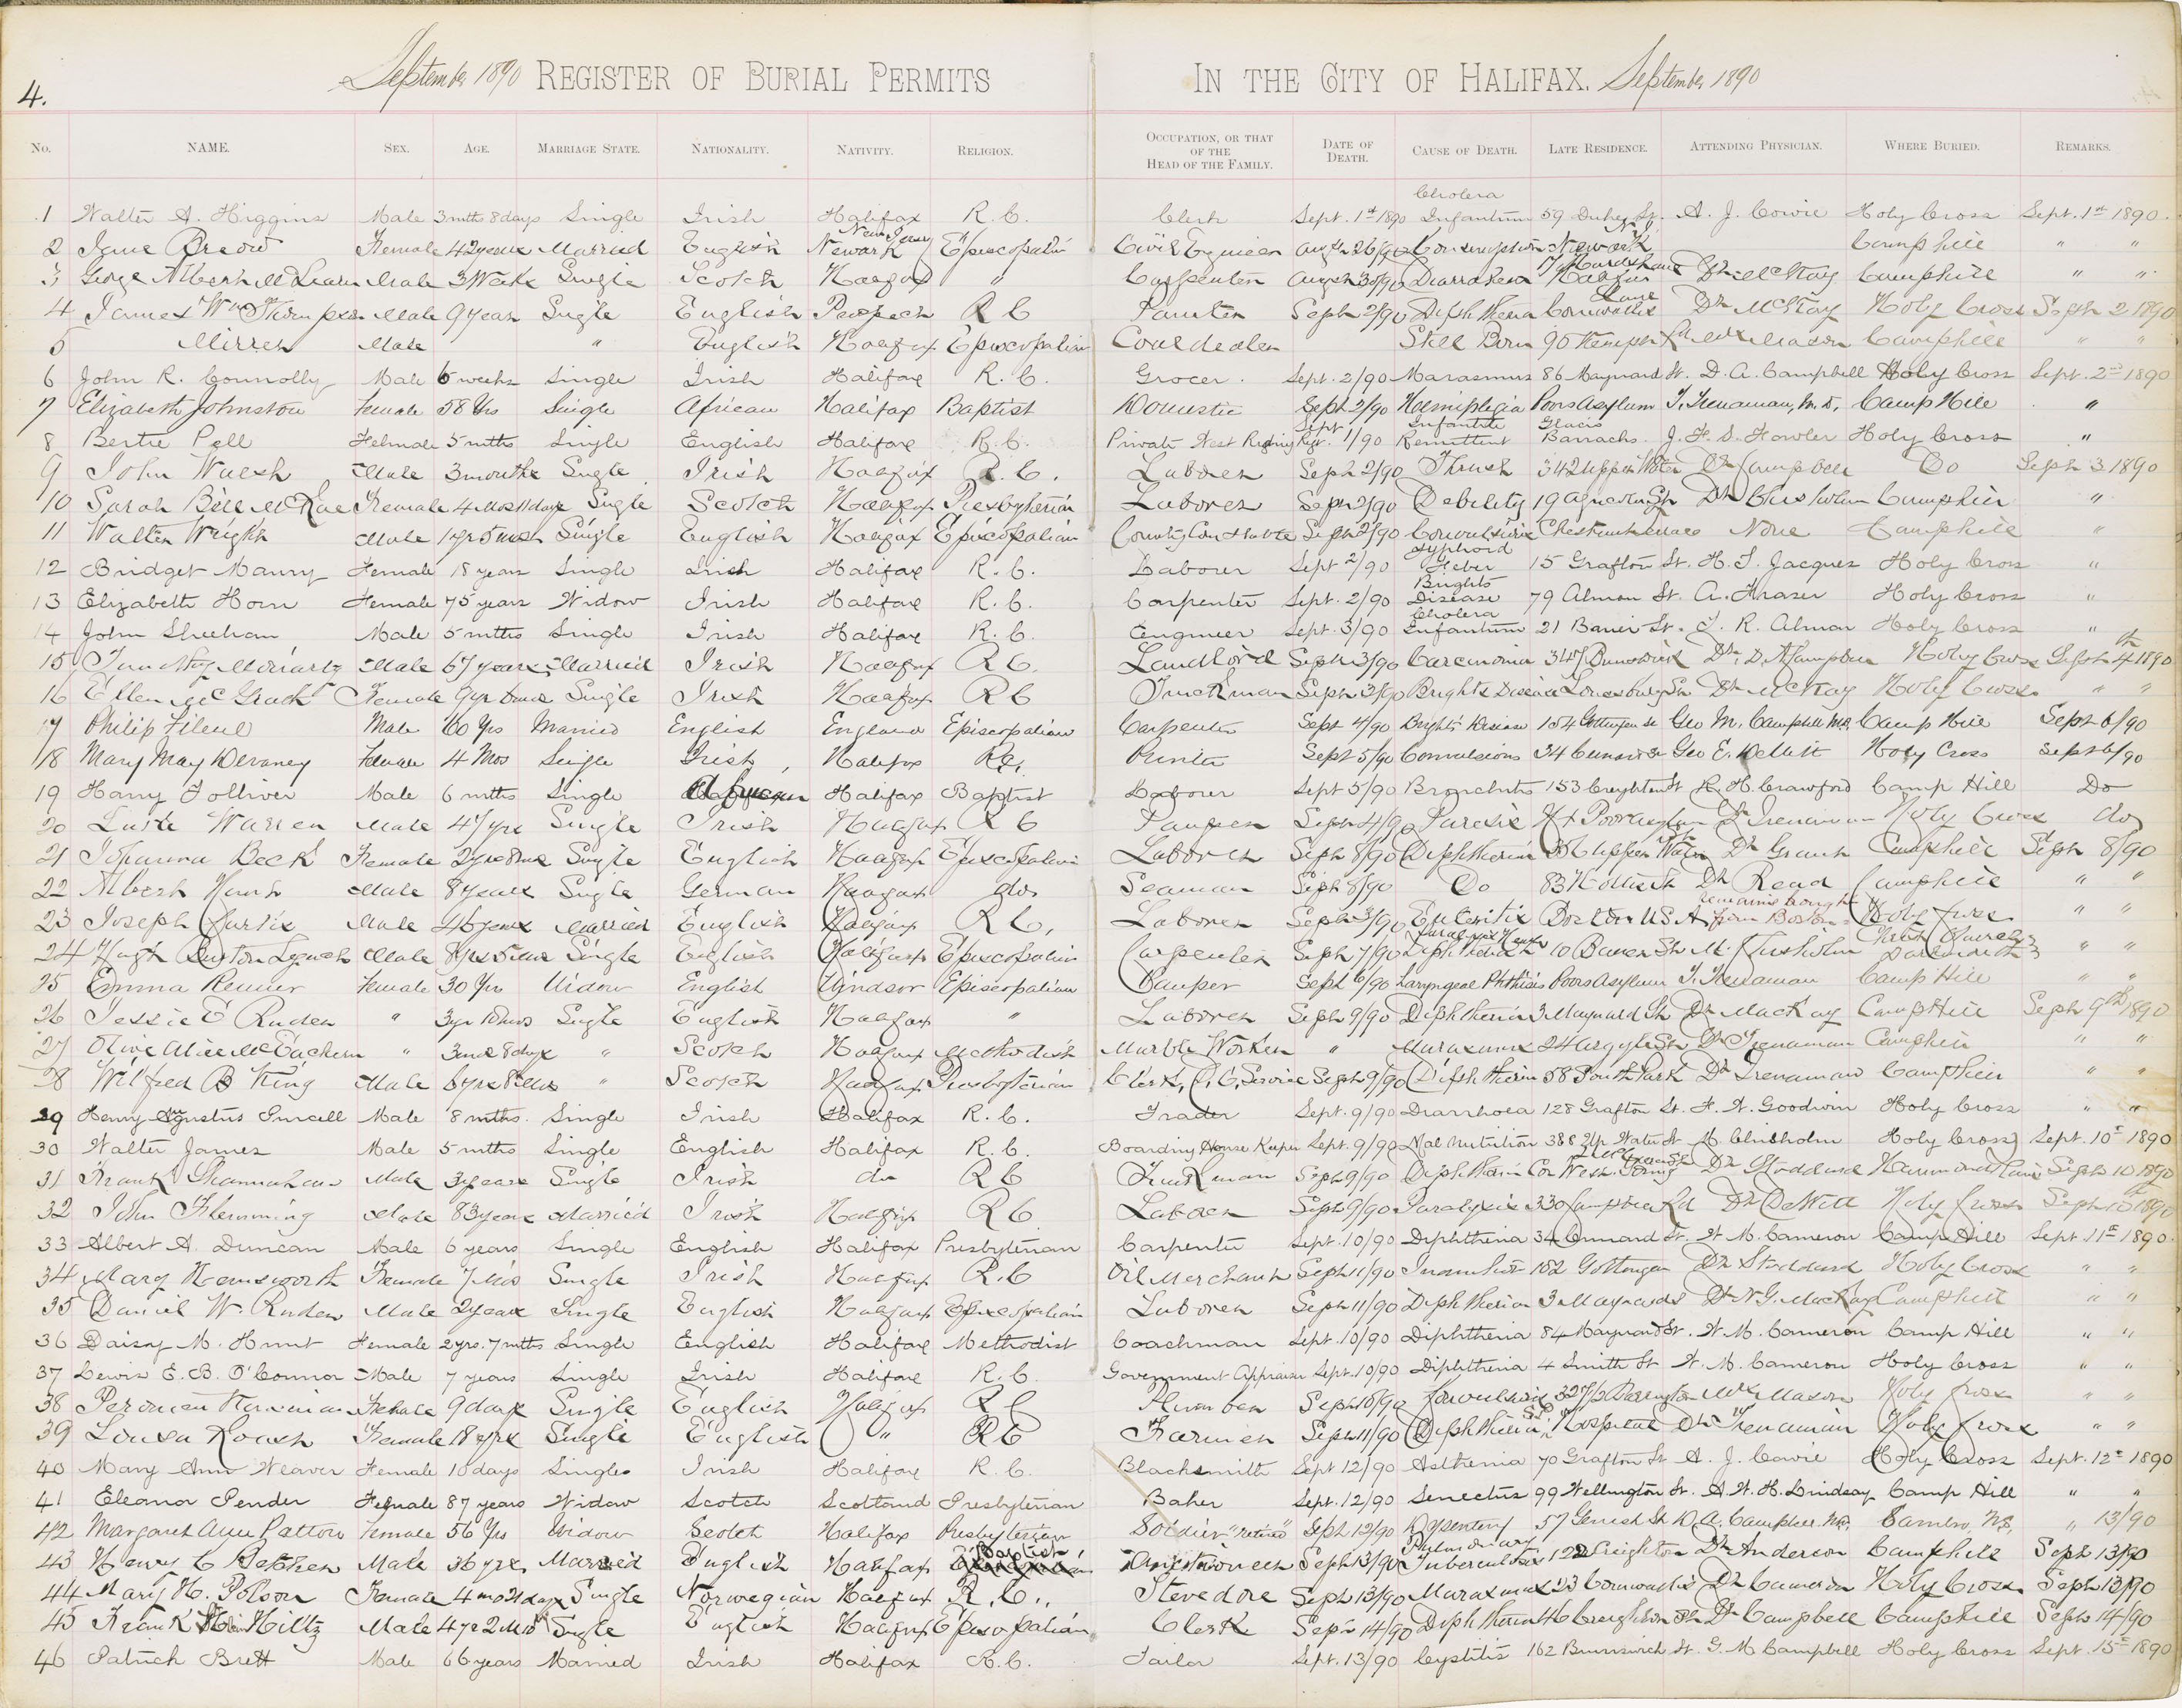 4.
September 1890 REGISTER OF BURIAL PERMITS IN THE CITY OF HALIFAX. September 1890
No. NAME. SEX. AGE. MARRIAGE STATE. NATIONALITY. NATIVITY. RELIGION. OCCUPATION, OR THAT OF THE HEAD OF THE FAMILY. DATE OF DEATH. CAUSE OF DEATH. LATE RESIDENCE. ATTENDING PHYSICIAN. WHERE BURIED. REMARKS.
1 Walter A. Higgins Male 3 mth 8 days Single Irish Halifax R. C. Clerk Sept. 1st 1890 Cholera Infantum 59 Duke St. A. J. Cowie Holy Cross Sept. 1st 1890.
2 Jane Female 42 years Married English Newark New Jersey Episcopalin Civil Engineer Aug 26/90 Consumption Newark N.J. Camp hill " "
3 George Albert Male 3 Weeks Single Scotch Halifax " Carpenter Augst 30/90 Diarrahoea Halifax Dr. McKay Camphill " "
4 James Wm Thompson Male 9 years Single English Prospech R C Painter Seph 2/90 Diphtheria Cornwallis Lane Dr McKay Holy Cross Seph 2 1890
5 Mirren Male " English Halifax Episcopalian Coal dealer Still Born 90 Kempt Rd Mrs Mason Camphill " "
6 John R. Connolly Male 6 weeks Single Irish Halifax R. C. Grocer. Sept. 2/90 Marasmus 86 Maynard St. D. A. Campbell Holy Cross Sept. 2nd 1890
7 Elizabeth Johnston Female 58 Yrs Single African Halifax Baptist Domestic Sept 2/90 Hemiplegia Poors Asylum T. Trenaman, M.D. Camp Hill "
8 Bertie Pell Felmale 5 mths Single English Halifax R. C. Private West Riding Regt. Sept 1/90 Infantile Remittent Glacis Barracks. J. F. S. Fowler Holy Cross "
9 John Walsh Male 3 months Sngle Irish Halifax R. C. Laborer Seph 2/90 Thrush 342 Upper Water Dr Campbell Do Seph 3 1890
10 Sarah Bell McRae Female 4 Mos 11 days Single Scotch Halifax Presbyterian Laborer Seph 2/90 Debility 19 Agricola St Dr Chisholm Camphill "
11 Walter Wright Male 1 yr 5 mos Single English Halifax Episcopalian County Constable Seph 2/90 Convulsions Chestnut None Camphill "
12 Bridget Female 18 years Single Irish Halifax R. C. Laborer Sept 2/90 Typhoid Fever 15 Grafton St. H. S. Jacques Holy Cross "
13 Elizabeth Horn Female 75 years Widow Irish Halifax R. C. Carpenter Sept. 2/90 Brights Disease 79 Almon St. A. Fraser Holy Cross "
14 John Sheehan Male 5 mths Single Irish Halifax R. C. Engineer Sept. 3/90 Cholera Infantum 21 St. R. Almon Holy Cross "
15 Timothy Moriarty Male 67 years Married Irish Halifax R C. Landlord Seph 3/90 Carcinoma 347 Brunswick Dr. D. A Campbell Holy Cross Seph 4th 1890
16 Ellen McGrath Female 9 yr 6 mos Single Irish Halifax R C Truckman Seph 3/90 Brights Disease Louisburg St Dr McKay Holy Cross " "
17 Philip Male 60 Yrs Married English England Episcopalian Carpenter Sept 4/90 Bright's Disease 154 Gottingen St Geo M. Campbell M.D. Camp Hill Sept 6/90
18 Mary May Devaney Female 4 Mos Single Irish Halifax R.C. Printer Sept 5/90 Convulsions 34 Cunard St Geo E. DeWitt Holy Cross Sept 6/90
19 Harry Tolliver Male 6 mths Single African Halifax Baptist Laborer Sept 5/90 Bronchitis 153 Creighton St R. H. Crawford Camp Hill Do
20 Luke Warren Male 47 yrs Single Irish Halifax R C Pauper Seph 4/90 Paresis Hx Poor asylum Dr Trenaman Holy Cross do
21 Johanna Beck Female 2 yrs 8 mos Single English Halifax Episcopalian Laborer Seph 8/90 Diphtheria 356 Upper Water St Dr Camphill Seph 8/90
22 Albert Male 8 years Single German Halifax do Seaman Seph 8/90 Do 83 Hollis St Dr Read Camphill " "
23 Joseph Curtis Male 46 years Married English Halifax R C. Laborer Seph 3/90 Enteritis Boston U.S.A remains brought from Boston Holy Cross " "
24 Hugh Burton Lynch Male 8 yrs 5 mos Single English Halifax Episcopalian Carpenter Seph 7/90 Diphtheria 10 Bauer St M. Chisholm Christ Church Dartmouth " "
25 Emma Female 30 Yrs Widow English Windsor Episcopalian Pauper Sept 6/90 Laryngeal Phthisis Poors Asylum T. Trenaman Camp Hill " "
26 Jessie E Ruden " 3 yr 10 mos Single English Halifax " Laborer Seph 9/90 Diphtheria 3 Maynard St Dr MacKay Camp Hill Seph 9th 1890
27 Olive Alice McEachern " 3 mos 8 days " Scotch Halifax Methodist Marble Worker " Marasmus 24 Argyle St Dr Trenaman Camphill " "
28 Wilfred B King Male 6 yrs 8 mos " Scotch Halifax Presbyterian Clerk, C. Service Seph 9/90 Diphtheria 58 South Park Dr Trenaman Camphill " "
29 Henry Agustus Purcell Male 8 mths. Single Irish Halifax R. C. Trader Sept. 9/90 Diarrhoea 128 Grafton St. F. W. Goodwin Holy Cross " "
30 Walter James Male 5 mths Single English Halifax R. C. Boarding House Keeper Sept. 9/90 Mal Nutrition 388 Up. Water St M. Chisholm Holy Cross Sept. 10th 1890
31 Frank Shannahan Male 3 years Single Irish do R C Truckman Seph 9/90 Diphtheria Cor West Dr Stoddard Hammonds Plains Seph 10 1890
32 John Flemming Male 83 years Married Irish Halifax R C. Laborer Seph 9/90 Paralysis 330 Campbell Rd Dr DeWitt Holy Cross Seph 10th 1890
33 Albert A. Duncan Male 6 years Single English Halifax Presbyterian Carpenter Sept. 10/90 Diphtheria 34 Cunnard St. W. M. Cameron Camp Hill Sept 11th 1890.
34 Mary Hemsworth Female 7 Mos Single Irish Halifax R. C Oil Merchant Seph 11/90 Inanition 182 Gottingen Dr Stoddard Holy Cross " "
35 Daniel W. Ruden Male 2 years Single English Halifax Episcopalian Laborer Seph 11/90 Diphtheria 3 Maynards Dr N. G. MacKay Camphill " "
36 Daisy M. Hunt Female 2 yrs. 7 mths Single English Halifax Methodist Coachman Sept. 10/90 Diphtheria 84 Maynard St. W. M. Cameron Camp Hill " "
37 Lewis E. B. O'Connor Male 7 years Single Irish Halifax R. C. Government Appraiser Sept. 10/90 Diphtheria 4 Smith St W. M. Cameron Holy Cross " "
38 Female 9 days Single English Halifax R C Plumber Seph 10/90 Convulsions 327 1/2 Barrington Mrs Mason Holy Cross " "
39 Louisa Roach Female 18 yrs Single English " R C Farmer Seph 11/90 Diphtheria Hospital Dr Trenaman Holy Cross " "
40 Mary Ann Weaver Female 10 days Single Irish Halifax R. C. Blacksmith Sept 12/90 Asthenia 70 Grafton St A. J. Cowie Holy Cross Sept. 12th 1890
41 Eleanor Pender Female 87 years Widow Scotch Scotland Presbyterian Baker Sept. 12/90 Senectus 99 Wellington St. A. W. H. Lindsay Camp Hill " "
42 Margaret Ann Patton Female 56 Yrs Widow Scotch Halifax Presbyterian Soldier "retired" Seph 12/90 Dysentery 57 Gerrish St D. A. Campbell M.D. Sambro, N.S. " 13/90
43 Henry C Male 36 yrs Married English Halifax Baptist Auctioneer Seph 13/90 Pulmonary Tuberculosis 122 Creighton Dr Anderson Camphill Seph 13/90
44 Mary H. Polson Female 4 mo 21 days Single Norwegian Halifax R. C. Stevedore Seph 13/90 Marasmus 23 Cornwallis Dr Cameron Holy Cross Seph 13/90
45 Frank Hiltz Male 4 yr 2 Mos Single English Halifax Episcopalian Clerk Seph 14/90 Diphtheria 46 Creighton St Dr Campbell Camphill Seph 14/90
46 Patrick Brett Male 66 years Married Irish Halifax R. C. Tailor Sept. 13/90 Cystitis 162 Brunswick St. G. M Campbell Holy Cross Sept. 15th 1890